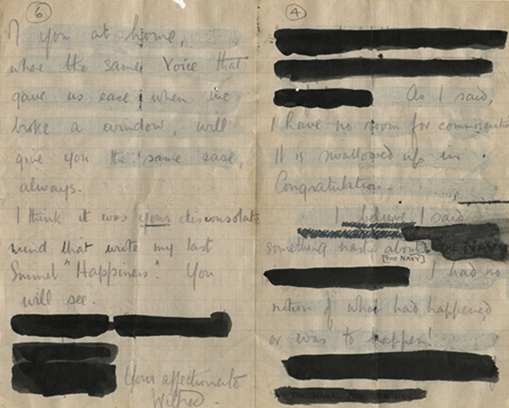 6
I you at home,
where the same Voice that
gave us ease, when we
broke a window, will
give you the same ease,
always.
I think it was your disconsolate
mind that wrote my last
Sonnet "Happiness". You
will see.
Your affectionate
Wilfred.
4
As I said,
I have no room for commiseration
It is swallowed up in
Congratulation.
I believe I said
something nasty about the NAVY
[THE NAVY]
I had no
notion of what had happened,
or was to happen!